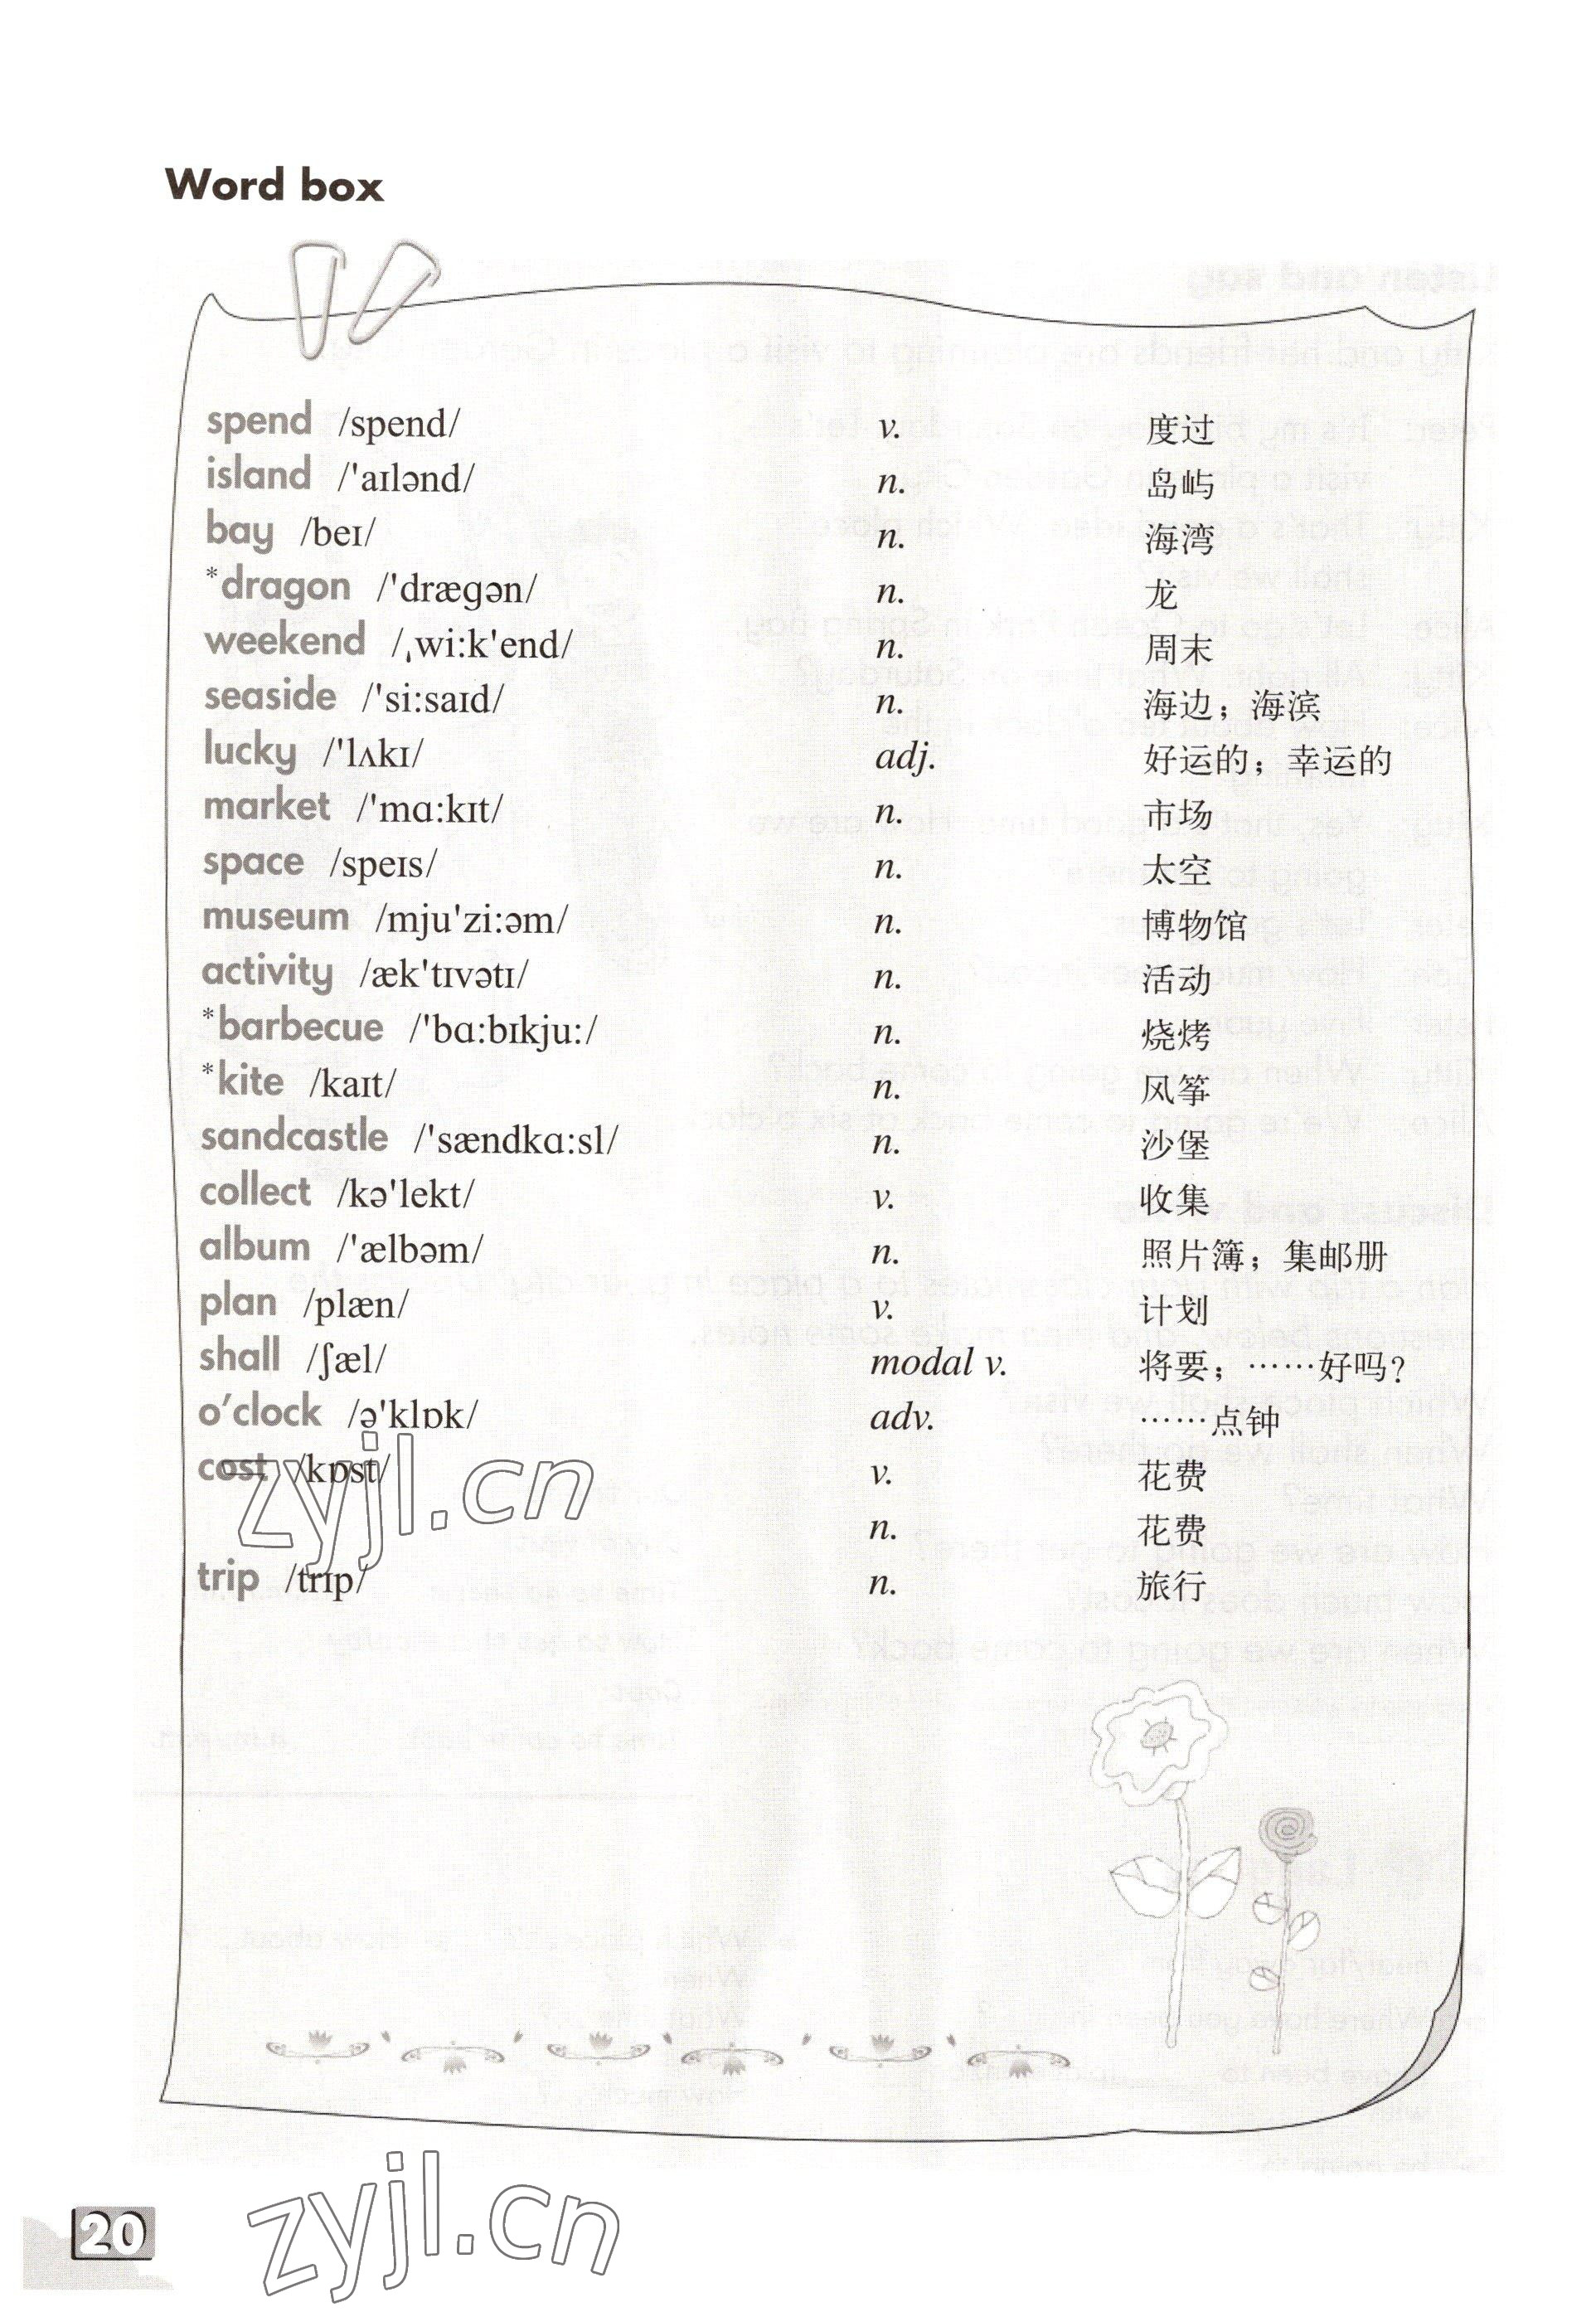 Word box
spend /spend/ v. 度过
island /'aɪlənd/ n. 岛屿
bay /beɪ/ n. 海湾
*dragon /'drægən/ n. 龙
weekend /ˌwi:k'end/ n. 周末
seaside /'si:saɪd/ n. 海边；海滨
lucky /'lʌkɪ/ adj. 好运的；幸运的
market /'mɑ:kɪt/ n. 市场
space /speɪs/ n. 太空
museum /mju'zi:əm/ n. 博物馆
activity /æk'tɪvətɪ/ n. 活动
*barbecue /'bɑ:bɪkju:/ n. 烧烤
*kite /kaɪt/ n. 风筝
sandcastle /'sændkɑ:sl/ n. 沙堡
collect /kə'lekt/ v. 收集
album /'ælbəm/ n. 照片簿；集邮册
plan /plæn/ v. 计划
shall /ʃæl/ modal v. 将要；……好吗？
o'clock /ə'klɒk/ adv. ……点钟
cost /kɒst/ v. 花费
n. 花费
trip /trɪp/ n. 旅行
zyjl.cn
zyjl.cn
20